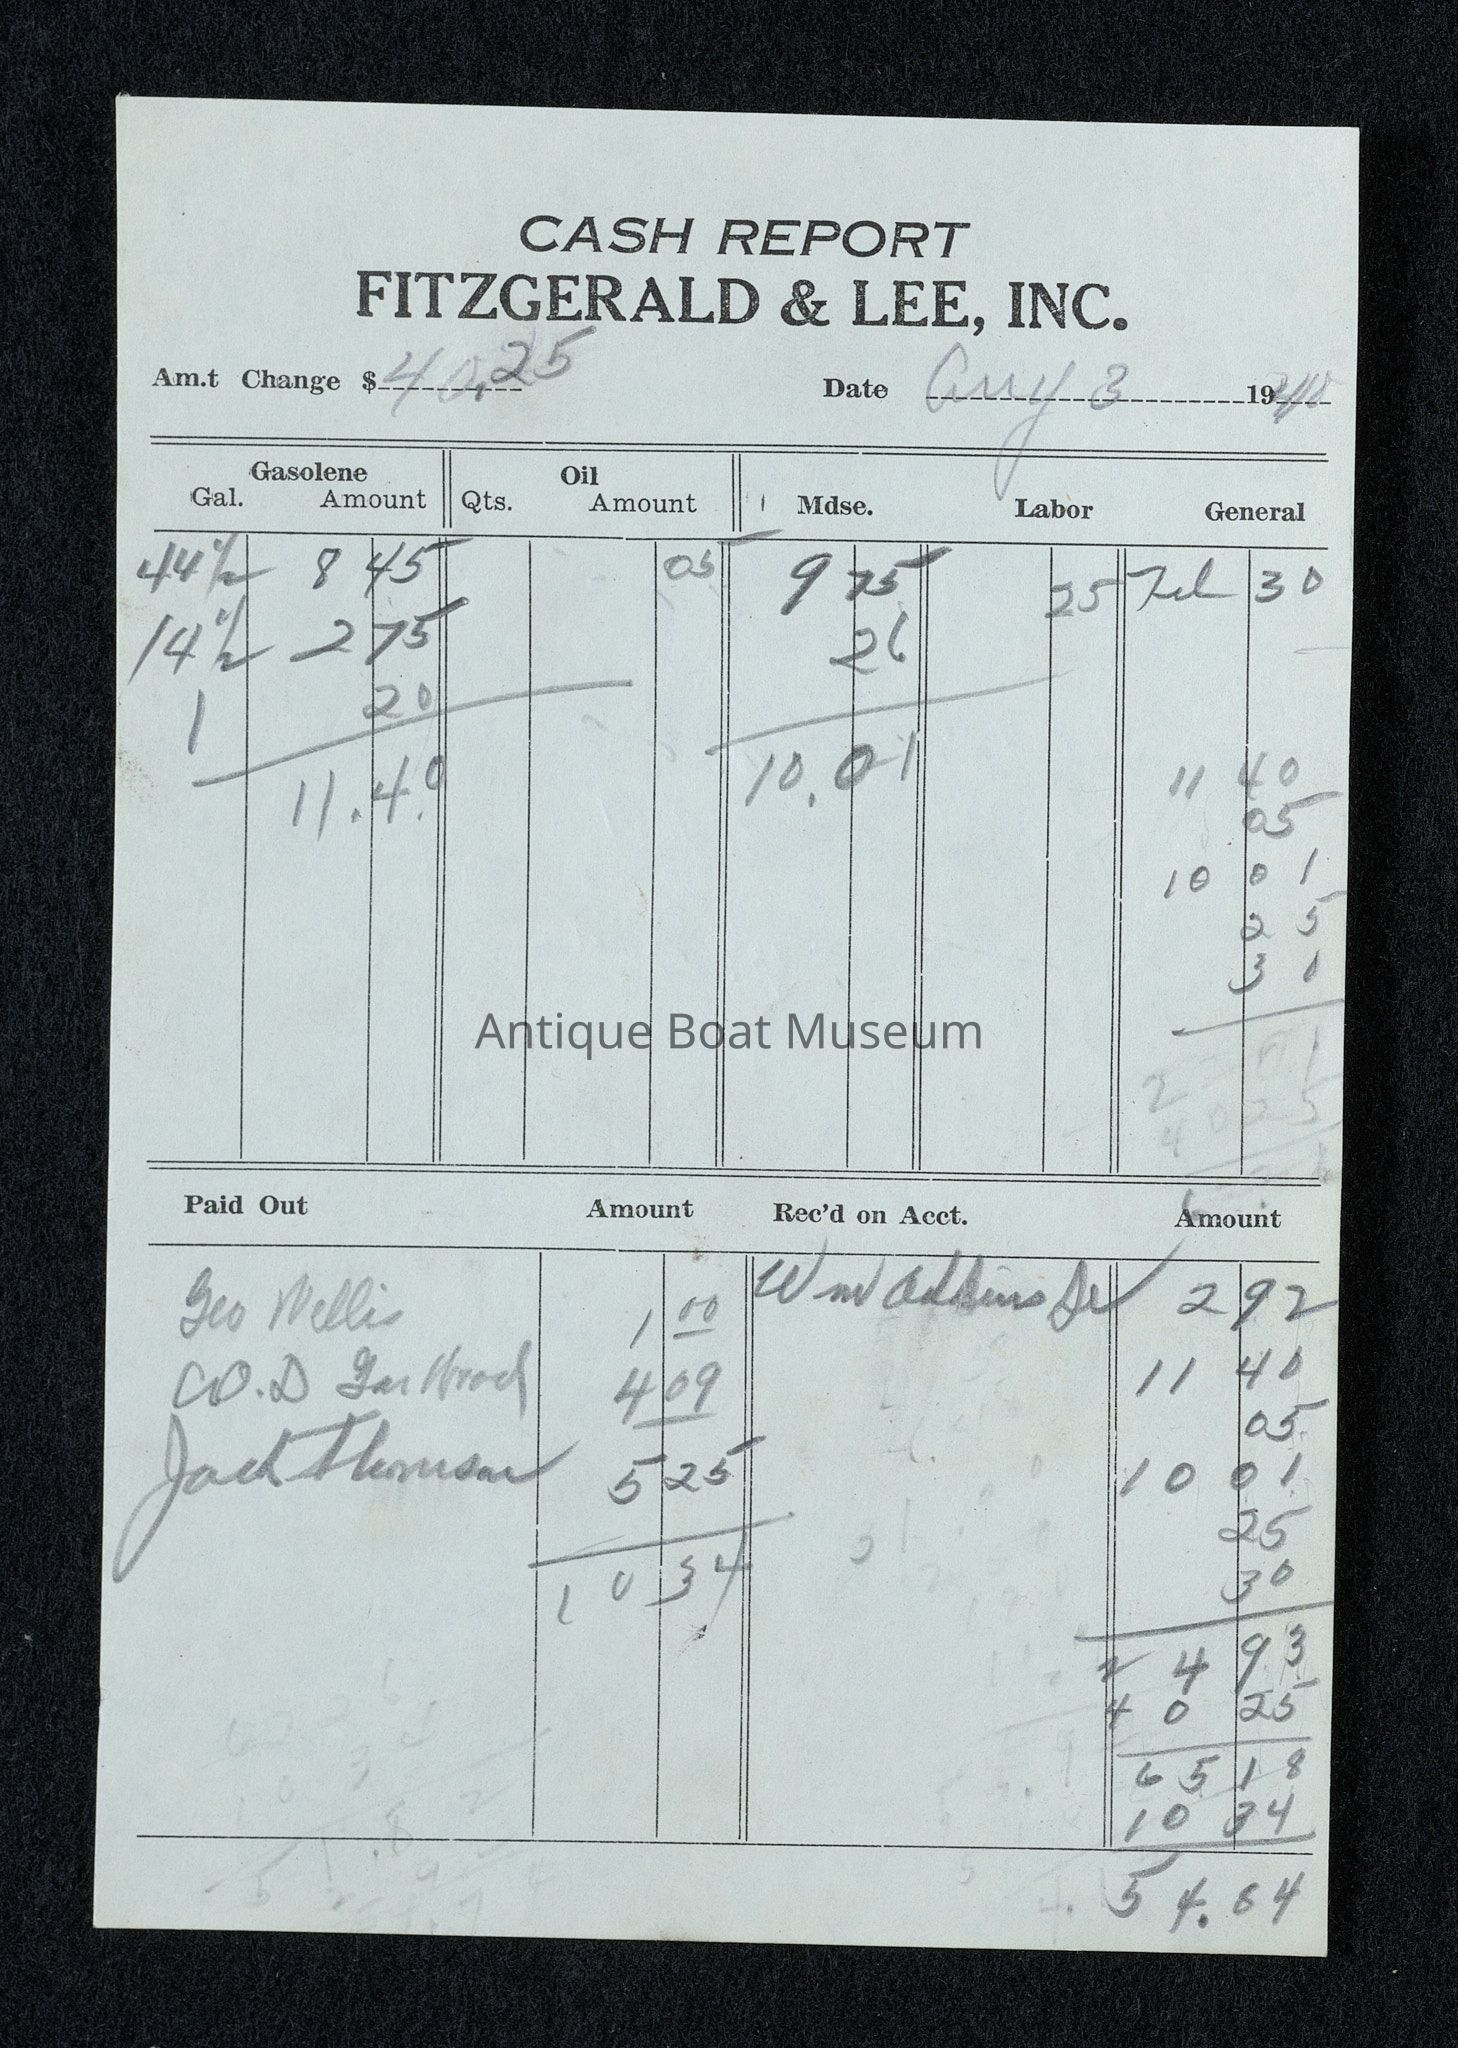 CASH REPORT
FITZGERALD & LEE, INC.
Am.t Change $ 40.25 Date Aug 3 1940
Gasolene Oil
Gal. Amount Qts. Amount Mdse. Labor General
44 1/2 8 45 05 9 75 25 Tel 30
14 1/2 2 75 26
1 20
11.40 10.01
11 40
05
10 01
25
30
Antique Boat Museum
2 1
40 25
Paid Out Amount Rec'd on Acct. Amount
Geo Wellis 1 00 Wm Adkins Jr 2 92
C.O.D Gar Wood 4 09 11 40
05
Jack Thomson 5 25 10 01
25
10 34 30
24 93
40 25
65 18
10 34
54.84